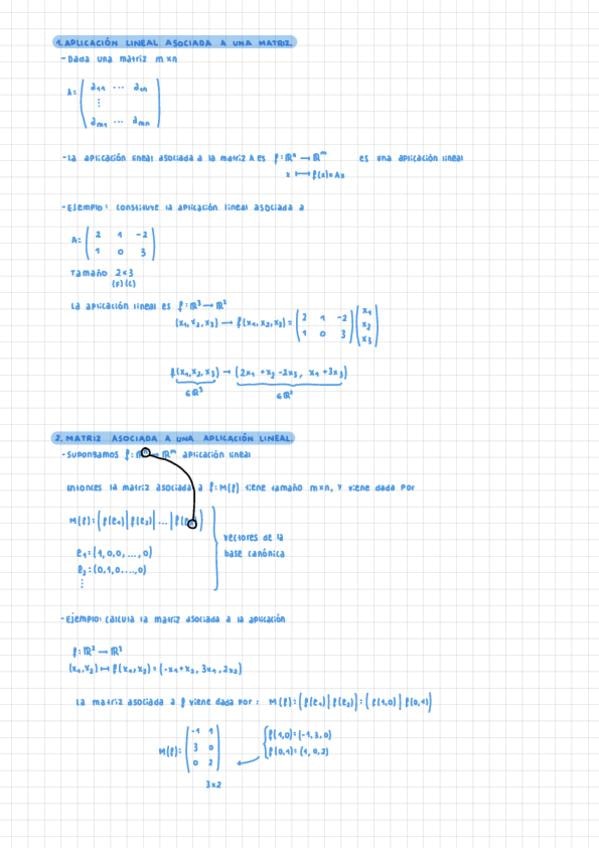 1. APLICACIÓN LINEAL ASOCIADA A UNA MATRIZ.
- Dada una matriz m×n
A= ( a₁₁ ... a₁ₙ
⋮
aₘ₁ ... aₘₙ )
- La aplicación lineal asociada a la matriz A es f: ℝⁿ → ℝᵐ es una aplicación lineal
x ⟼ f(x)=Ax
- Ejemplo: constituye la aplicación lineal asociada a
A= ( 2 1 -2
1 0 3 )
Tamaño 2×3
(F) (C)
La aplicación lineal es f: ℝ³ → ℝ²
(x₁, x₂, x₃) → f(x₁, x₂, x₃) = ( 2 1 -2 ) ( x₁
x₂
1 0 3 x₃ )
f(x₁, x₂, x₃) → (2x₁ + x₂ - 2x₃, x₁ + 3x₃)
∈ℝ³ ∈ℝ²
2. MATRIZ ASOCIADA A UNA APLICACIÓN LINEAL.
- Supongamos f: → ℝᵐ aplicación lineal
Entonces la matriz asociada a f: M(f) tiene tamaño m×n, y viene dada por
M(f): ( f(e₁) | f(e₂) | ... | f(e )
e₁=(1,0,0,...,0)
e₂=(0,1,0...,0)
⋮
vectores de la
base canónica
- Ejemplo: calcula la matriz asociada a la aplicación
f: ℝ² → ℝ³
(x₁, x₂) ⟼ f(x₁, x₂) = (-x₁+x₂, 3x₁, 2x₂)
La matriz asociada a f viene dada por: M(f)= ( f(e₁) | f(e₂) ) = ( f(1,0) | f(0,1) )
M(f)= ( -1 1
3 0
0 2 )
3×2
f(1,0)=(-1,3,0)
f(0,1)=(1,0,2)